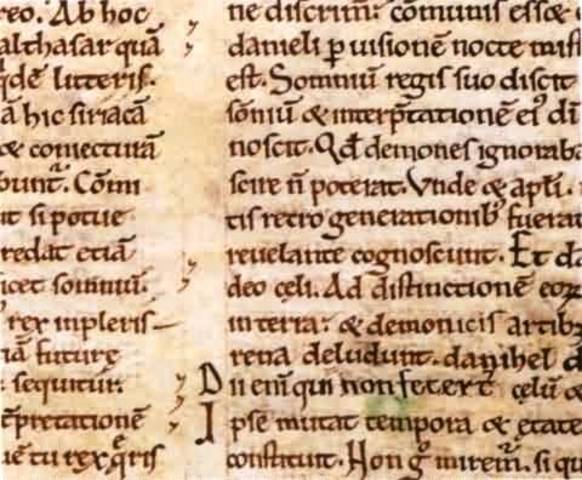 reo. Ab hoc
althasar quā
qdē litteris.
ā hic siriacā
& coniecturā
bunt. Cōm
ut si potue
redat etiā
icet somniū.
rex inpleris
nā future
sequitur.
tprętationē
uē tu rex qris
ne discrim: cōmunis esse
danieli ꝑ uisionē nocte mis
est. Somniū regis suo discit
sōniū & interp̄tationē ei' di
noscit. Qd demones ignoraba
scire n̄ poterat. Vnde & apli.
tis retro generationib' fuera
reuelante cognoscunt. Et da
deo cęli. Ad distinctionē eoꝝ
in terra: & demonicis artib
rena deludunt. danihel d
Dii enī qui non fecerт cęlū &
Ipse mutat tempora & ętate
constituit. Non g° mirem̄. si qu